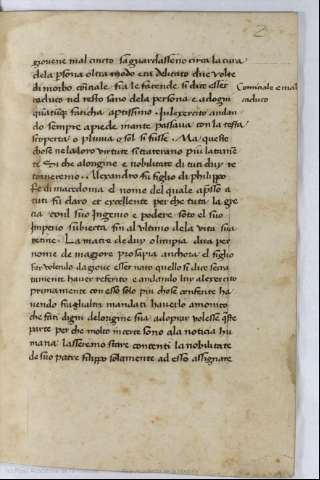 2
giovene mal cincto sa guardasseno circa la cura
dela psona oltra modo era delicato due volte
di morbo comitiale fra le facende si dice esser
caduto nel resto sano dela persona e adogni
qualuque faticha aptissimo. In exercito andan
do sempre apiede inante passava con la testa
scoperta o pluvia o sol si fusse. Ma queste
chose ne la loro virtute si trateranno piu latamē
te Et che a lorigine e nobilitate di tuti duy re
torneremo. Alexandro fu figlio di philippo
Re di macedonia el nome del quale apsso a
tuti fu claro et excellente per che tuta la gre
cia cō il suo Ingenio e podere soto el suo
Imperio subiecta fin al ultimo dela vita sua
tenne. La matre de duy olimpia dita per
nome de magiore prosapia anchora el figlio
far volendo da giove esser nato quello si dice secra
tamente haver referito e andando luy alexercito
primamente con esse solo piu chose conferite ha
vendo fra glialtri mandati haverlo amonito
che fati digni del origine sua adoprar volesse q̄sta
parte per che molto incerte sono a la noticia hu
mana lasseremo stare contenti la nobilitate
de suo patre filippo solamente ad esso assignare
Comiciale e mal
caduco